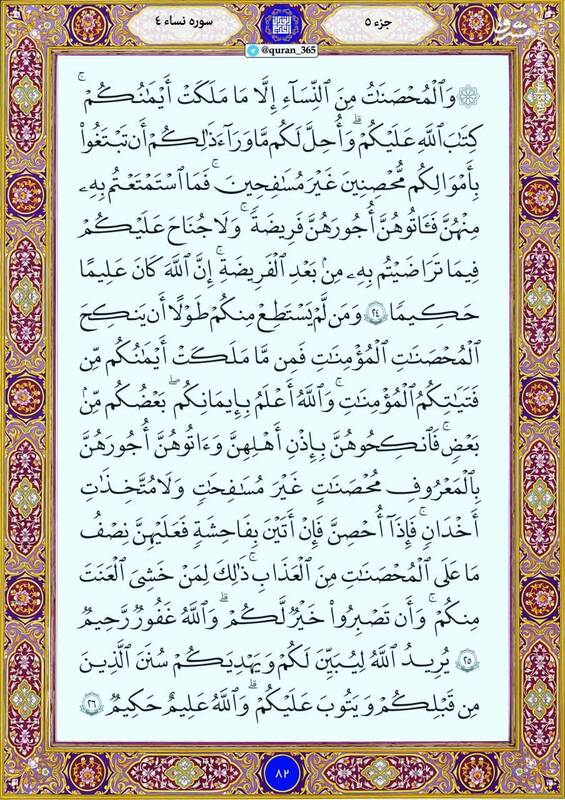 جزء ٥
سوره نساء ٤
@quran_365
وَٱلْمُحْصَنَٰتُ مِنَ ٱلنِّسَآءِ إِلَّا مَا مَلَكَتْ أَيْمَٰنُكُمْ ۚ
كِتَٰبَ ٱللَّهِ عَلَيْكُمْ ۚ وَأُحِلَّ لَكُم مَّا وَرَآءَ ذَٰلِكُمْ أَن تَبْتَغُوا۟
بِأَمْوَٰلِكُم مُّحْصِنِينَ غَيْرَ مُسَٰفِحِينَ ۚ فَمَا ٱسْتَمْتَعْتُم بِهِۦ
مِنْهُنَّ فَـَٔاتُوهُنَّ أُجُورَهُنَّ فَرِيضَةً ۚ وَلَا جُنَاحَ عَلَيْكُمْ
فِيمَا تَرَٰضَيْتُم بِهِۦ مِنۢ بَعْدِ ٱلْفَرِيضَةِ ۚ إِنَّ ٱللَّهَ كَانَ عَلِيمًا
حَكِيمًا ٢٤ وَمَن لَّمْ يَسْتَطِعْ مِنكُمْ طَوْلًا أَن يَنكِحَ
ٱلْمُحْصَنَٰتِ ٱلْمُؤْمِنَٰتِ فَمِن مَّا مَلَكَتْ أَيْمَٰنُكُم مِّن
فَتَيَٰتِكُمُ ٱلْمُؤْمِنَٰتِ ۚ وَٱللَّهُ أَعْلَمُ بِإِيمَٰنِكُم ۚ بَعْضُكُم مِّنۢ
بَعْضٍ ۚ فَٱنكِحُوهُنَّ بِإِذْنِ أَهْلِهِنَّ وَءَاتُوهُنَّ أُجُورَهُنَّ
بِٱلْمَعْرُوفِ مُحْصَنَٰتٍ غَيْرَ مُسَٰفِحَٰتٍ وَلَا مُتَّخِذَٰتِ
أَخْدَانٍ ۚ فَإِذَآ أُحْصِنَّ فَإِنْ أَتَيْنَ بِفَٰحِشَةٍ فَعَلَيْهِنَّ نِصْفُ
مَا عَلَى ٱلْمُحْصَنَٰتِ مِنَ ٱلْعَذَابِ ۚ ذَٰلِكَ لِمَنْ خَشِىَ ٱلْعَنَتَ
مِنكُمْ ۚ وَأَن تَصْبِرُوا۟ خَيْرٌ لَّكُمْ ۗ وَٱللَّهُ غَفُورٌ رَّحِيمٌ
٢٥ يُرِيدُ ٱللَّهُ لِيُبَيِّنَ لَكُمْ وَيَهْدِيَكُمْ سُنَنَ ٱلَّذِينَ
مِن قَبْلِكُمْ وَيَتُوبَ عَلَيْكُمْ ۗ وَٱللَّهُ عَلِيمٌ حَكِيمٌ ٢٦
٨٢